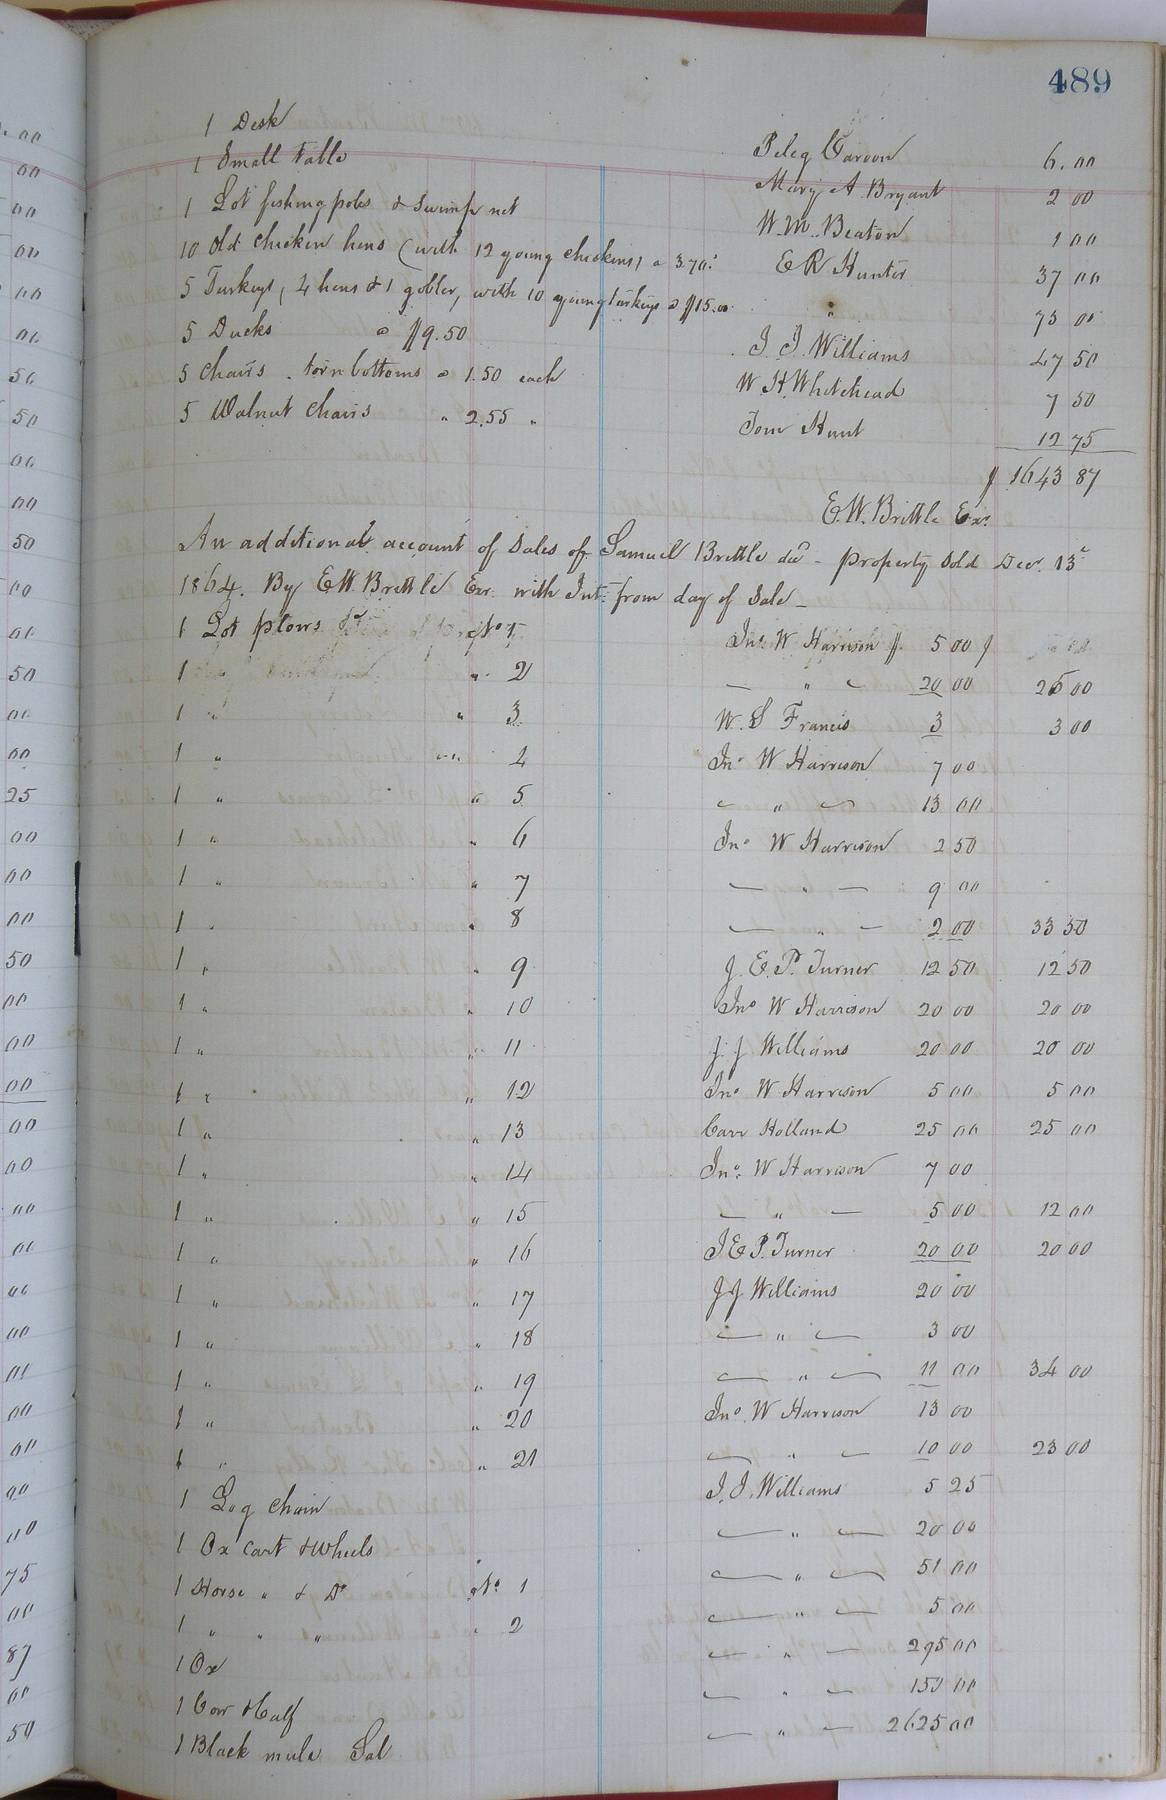 489
1 Desk Peleg 6.00
1 Small Table Mary A. Bryant 2 00
1 Lot fishing poles & net W. M. Beaton 1 00
10 Old chicken hens (with 12 young chickens) @ 3.70 E R Hunter 37 00
5 Turkeys, 4 hens & 1 gobler, with 10 young turkeys @ $15.00 " 75 00
5 Ducks @ $9.50 J. J. Williams 47 50
5 Chairs. torn bottoms @ 1.50 each W. H. Whitehead 7 50
5 Walnut Chairs " 2.55 " Tom Hunt 12 75
$ 1643 87
E. W. Brittle Exr
An additional account of Sales of Samuel Brittle decd - property sold Dec. 13th
1864. By E W. Brittle Exr with Int. from day of Sale -
1 Lot plows &c No 1 Jno. W Harrison $ 5 00 $
1 " " 2 — " — 20 00 25 00
1 " " 3 W. S Francis 3 3 00
1 " " 4 Jno W Harrison 7 00
1 " " 5 — " — 13 00
1 " " 6 Jno W Harrison 2 50
1 " " 7 — " — 9 00
1 " " 8 — " — 2 00 33 50
1 " " 9 J. E. P. Turner 12 50 12 50
1 " " 10 Jno W Harrison 20 00 20 00
1 " " 11 J. J Williams 20 00 20 00
1 " " 12 Jno W Harrison 5 00 5 00
1 " " 13 Carr Holland 25 00 25 00
1 " " 14 Jno. W Harrison 7 00
1 " " 15 — " — 5 00 12 00
1 " " 16 J E P. Turner 20 00 20 00
1 " " 17 J J Williams 20 00
1 " " 18 — " — 3 00
1 " " 19 — " — 11 00 34 00
1 " " 20 Jno. W Harrison 13 00
1 " " 21 — " — 10 00 23 00
1 Log chain J. J. Williams 5 25
1 Ox cart & wheels — " — 20 00
1 Horse " & Do No 1 — " — 51 00
1 " " " " 2 — " — 5 00
1 Ox — " — 295 00
1 Cow & Calf — " — 150 00
1 Black mule Sal — " — 2625 00